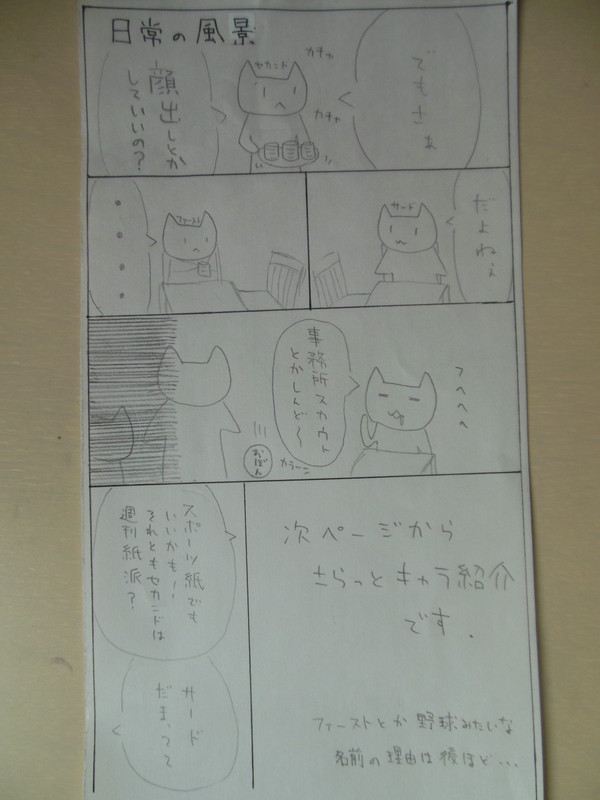 日常の風景
でもさぁ
カチャ
カチャ
セカンド
顔出しとか
していいの？
だよねぇ
サード
ファースト
・・・・
フへへへ
事務所スカウト
とかしんど～
おぼん
カラーン
スポーツ紙でも
いいかも！
それともセカンドは
週刊紙派？
サード
だまってて
次ページから
さらっとキャラ紹介
です.
ファーストとか野球みたいな
名前の理由は後ほど...